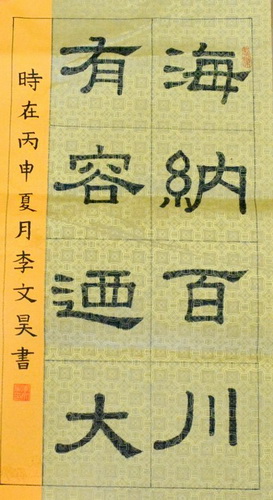 海納百川
有容迺大
時在丙申夏月李文昊書